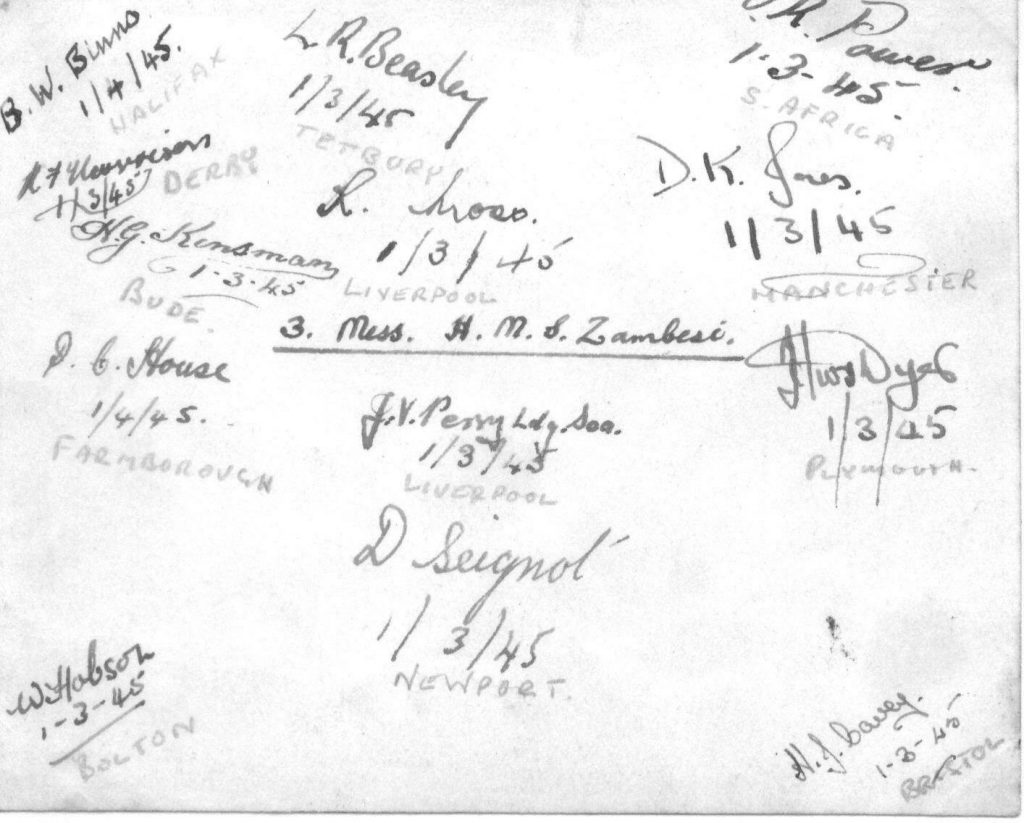 B. W. Binns
1/4/45.
HALIFAX
L R. Beasley
1/3/45
TETBURY
R. Power.
1-3-45.
S. AFRICA
1/3/45
DERBY
H.G. Kinsman
1-3-45
BUDE.
R.
1/3/45
LIVERPOOL
D.K. Jones.
1/3/45
MANCHESTER
3. Mess. H. M. S. Zambesi.
C. House
1/4/45.
FARNBOROUGH
J.V. Perry Ldg. Sea.
1/3/45
LIVERPOOL
1/3/45
PLYMOUTH.
D Seignol
1/3/45
NEWPORT.
W. Hobson
1-3-45
BOLTON
1-3-45
BRISTOL